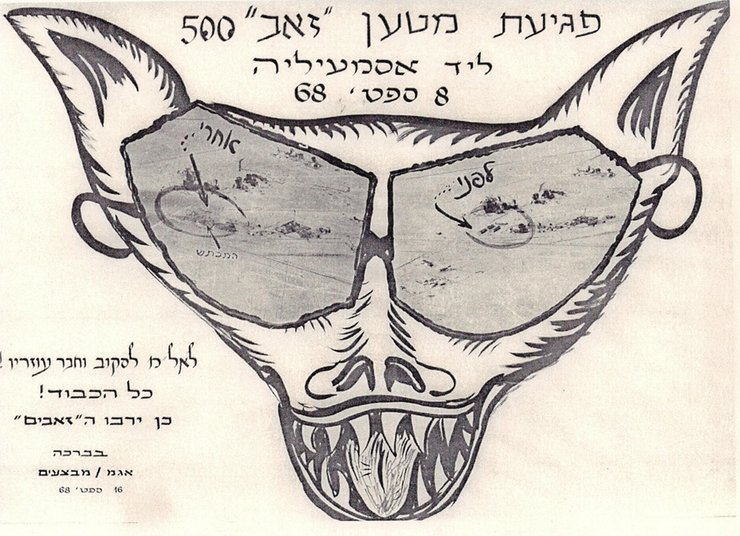 פגיעת מטען "זאב" 500
ליד אסמעיליה
8 ספט' 68
אחרי...
המכתש
לפני...
לאל"מ לסקוב וחבר עוזריו!
כל הכבוד!
כן ירבו ה"זאבים"
בברכה
אגמ/מבצעים
16 ספט' 68